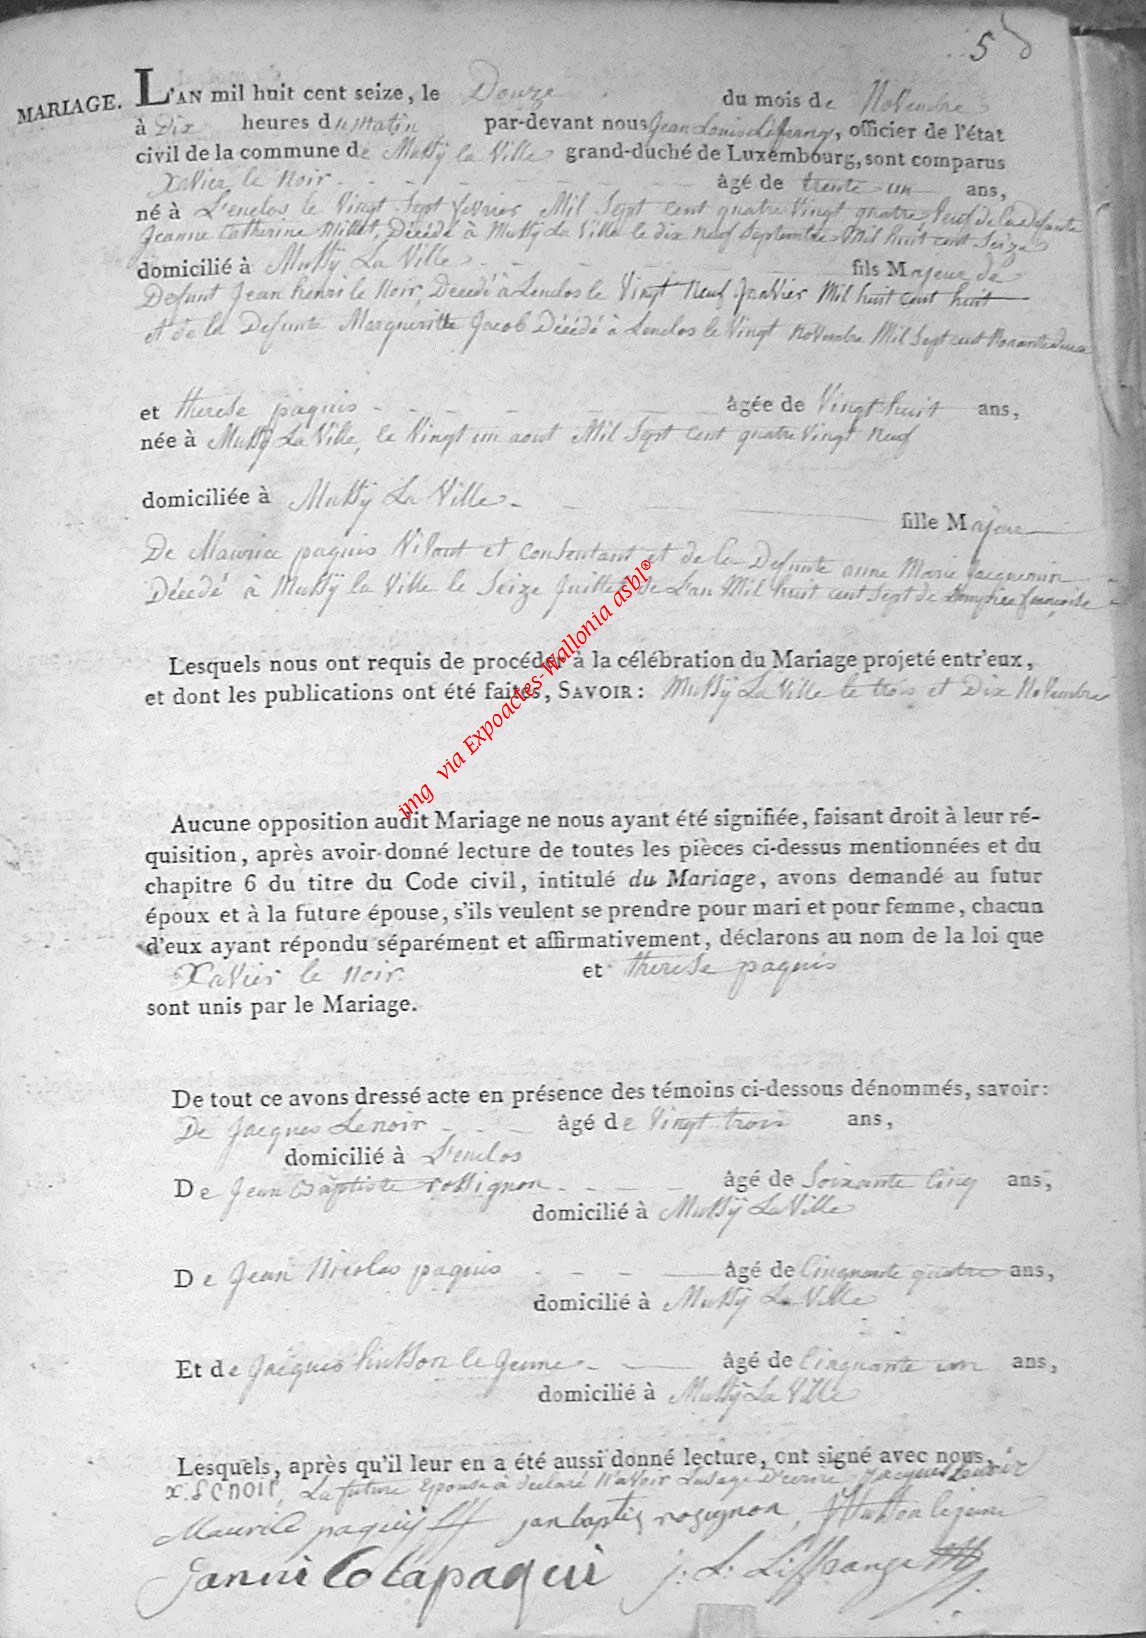 58
MARIAGE. L'AN mil huit cent seize, le Douze du mois de Novembre
à Dix heures du matin par-devant nous Jean Louis Liffrange, officier de l'état
civil de la commune de Mussÿ la Ville grand-duché de Luxembourg, sont comparus
Xavier le Noir âgé de trente un ans,
né à L'enclos le Vingt Sept fevrier Mil Sept cent quatre Vingt quatre, Veuf de la defunte
Jeanne Catherine Millet, Décédé à Mussÿ La Ville le dix neuf Septembre Mil huit cent Seize
domicilié à Mussÿ La Ville fils Majeur de
Defunt Jean henri le Noir, Decedé à Lenclos le Vingt Neuf Janvier Mil huit cent huit
et de la Defunte Margueritte Jacob Décédé à Lenclos le Vingt Novembre Mil Sept cent Nonante deux
et therese paquis âgée de Vingt huit ans,
née à Mussÿ La Ville, le Vingt un aout Mil Sept cent quatre Vingt Neuf
domiciliée à Mussÿ La Ville
fille Majeur
De Maurice paquis Vivant et Consentant et de la Defunte anne Marie Jacquemin
Décédé à Mussÿ la Ville le Seize Juillet de L'an Mil huit cent Sept de françoise
Lesquels nous ont requis de procéder à la célébration du Mariage projeté entr'eux,
et dont les publications ont été faites, SAVOIR: Mussÿ La Ville le trois et Dix Novembre
img via Expoactes-Wallonia asbl®
Aucune opposition audit Mariage ne nous ayant été signifiée, faisant droit à leur ré-
quisition, après avoir donné lecture de toutes les pièces ci-dessus mentionnées et du
chapitre 6 du titre du Code civil, intitulé du Mariage, avons demandé au futur
époux et à la future épouse, s'ils veulent se prendre pour mari et pour femme, chacun
d'eux ayant répondu séparément et affirmativement, déclarons au nom de la loi que
Xavier le Noir et therese paquis
sont unis par le Mariage.
De tout ce avons dressé acte en présence des témoins ci-dessous dénommés, savoir:
De Jacques Lenoir âgé de Vingt trois ans,
domicilié à L'enclos
De Jean Baptiste rossignon âgé de Soixante Cinq ans,
domicilié à Mussÿ La Ville
De Jean Nicolas paquis âgé de Cinquante quatre ans,
domicilié à Mussÿ La Ville
Et de Jacques husson le Jeune âgé de Cinquante un ans,
domicilié à Mussÿ La Ville
Lesquels, après qu'il leur en a été aussi donné lecture, ont signé avec nous,
x. lenoir, La future Epouse à declaré N'avoir Lusage D'ecrire Jacques lenoir
Maurice paquis jan baptis rosignon, J husson le jeune
janni Colapaqui j: L: Liffrange